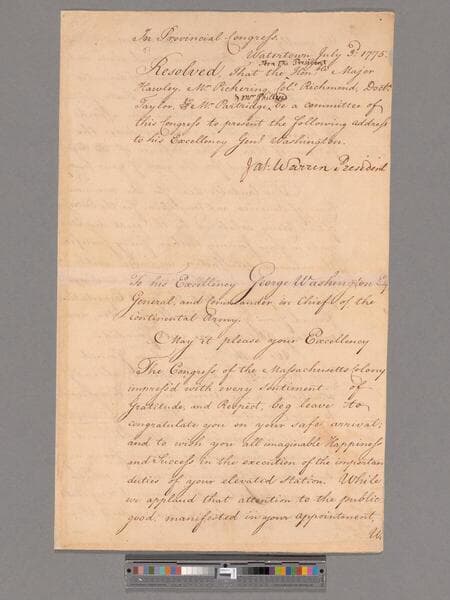 In Provincial Congress.
Watertown July 3d. 1775.
thro the President
Resolved, That the Honble. Major
Hawley, Mr. Pickering, Colo. Richmond, Doctr.
Mr Phillips
Taylor, & Mr. Partridge, be a committee of
this Congress to present the following address
to his Excellency Genl. Washington.
Jas. Warren President
To his Excellency George Washington Esq
General, and Commander in Chief of the
continental Army.
May it please your Excellency
The Congress of the Massachusetts Colony
impressed with every Sentiment of
Gratitude, and Respect, beg leave to
congratulate you on your safe arrival;
and to wish you all imaginable Happiness
and Success in the execution of the important
duties of your elevated Station. While
we applaud that attention to the public
good, manifested in your appointment,